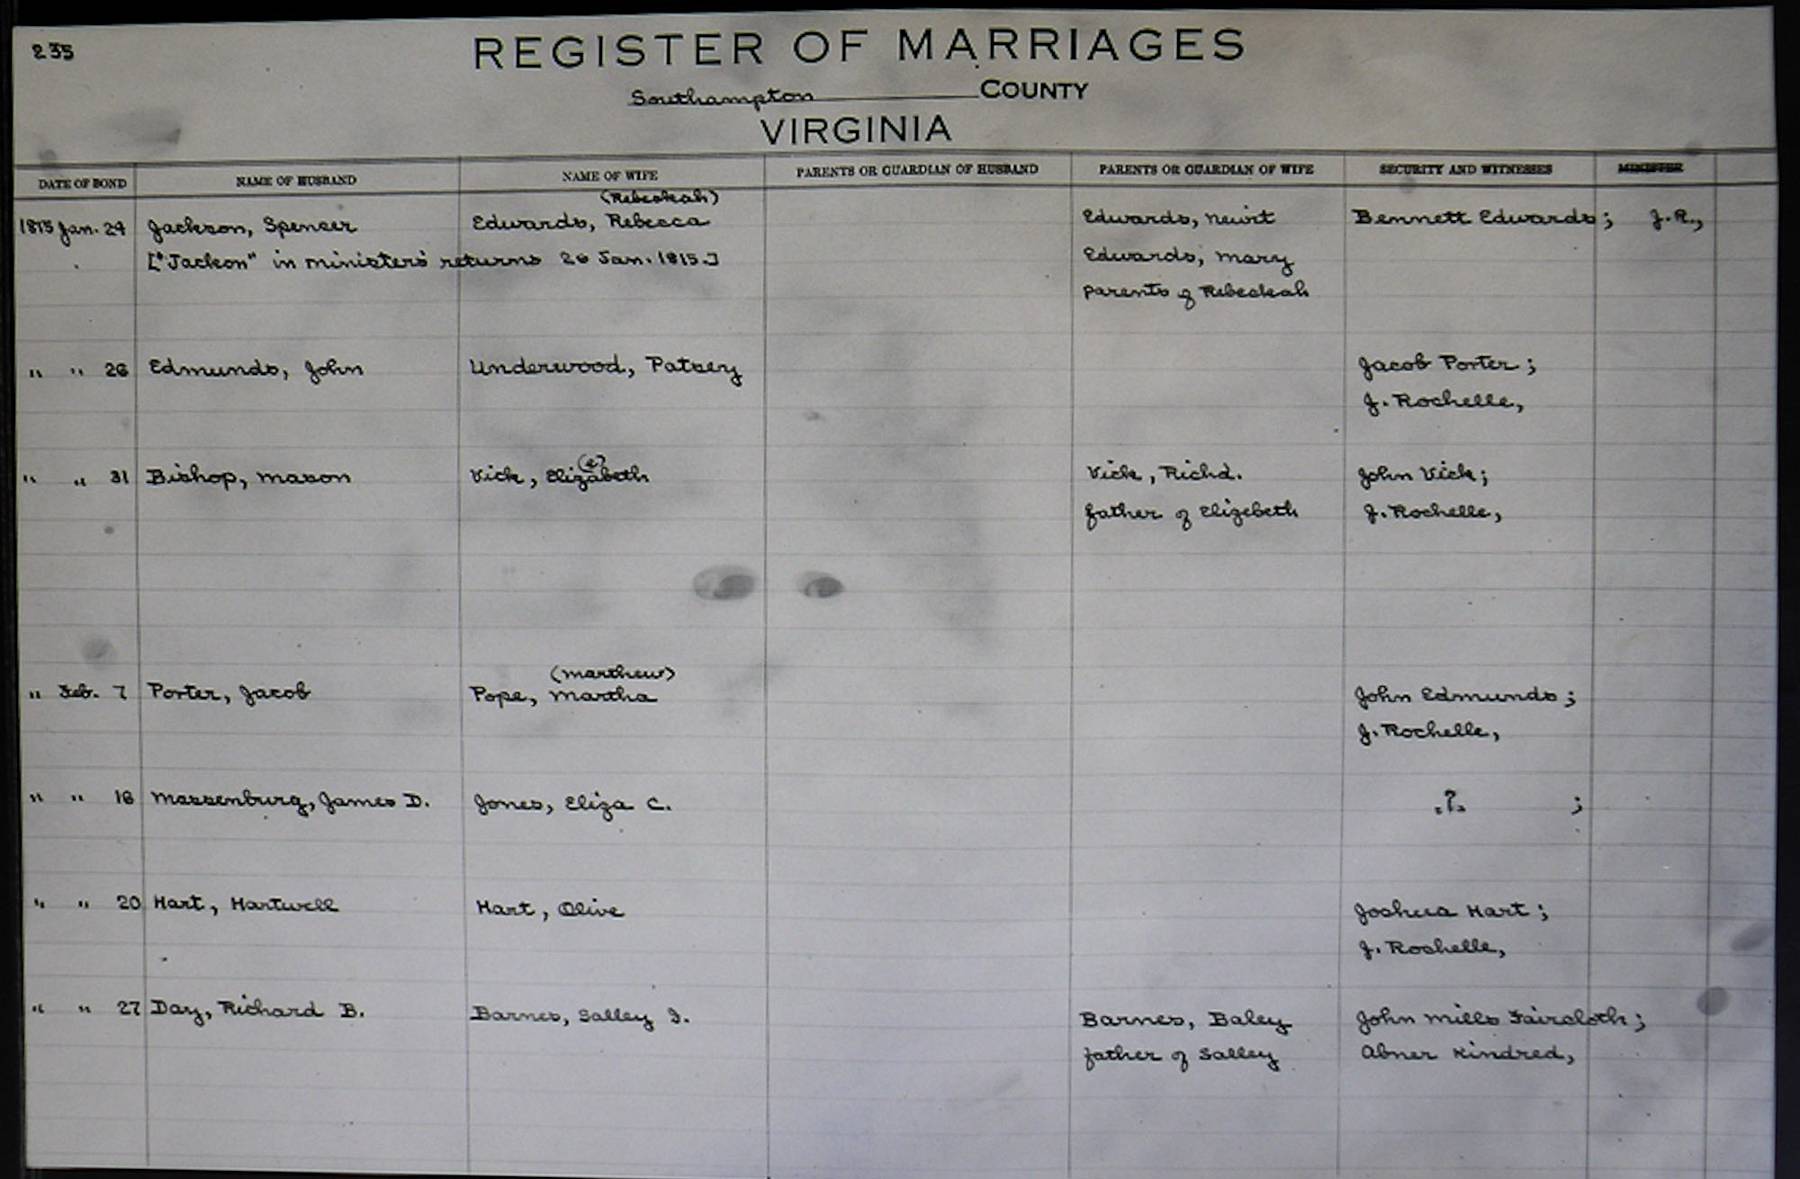 235
REGISTER OF MARRIAGES
Southampton COUNTY
VIRGINIA
DATE OF BOND NAME OF HUSBAND NAME OF WIFE PARENTS OR GUARDIAN OF HUSBAND PARENTS OR GUARDIAN OF WIFE SECURITY AND WITNESSES MINISTER
(Rebeckah)
1815 Jan. 24 Jackson, Spencer Edwards, Rebecca Edwards, Newit Bennett Edwards; J.R.,
["Jackon" in ministers' returns 26 Jan. 1815.] Edwards, Mary
parents of Rebeckah
" " 26 Edmunds, John Underwood, Patsey Jacob Porter;
J. Rochelle,
(e)
" " 31 Bishop, Mason Vick, Elizabeth Vick, Richd. John Vick;
father of Elizebeth J. Rochelle,
(Marthew)
" Feb. 7 Porter, Jacob Pope, Martha John Edmunds;
J. Rochelle,
" " 18 Massenburg, James D. Jones, Eliza C. .?. ;
" " 20 Hart, Hartwell Hart, Olive Joshua Hart;
J. Rochelle,
" " 27 Day, Richard B. Barnes, Salley J. Barnes, Baley John Mills Faircloth;
father of Salley Abner Kindred,